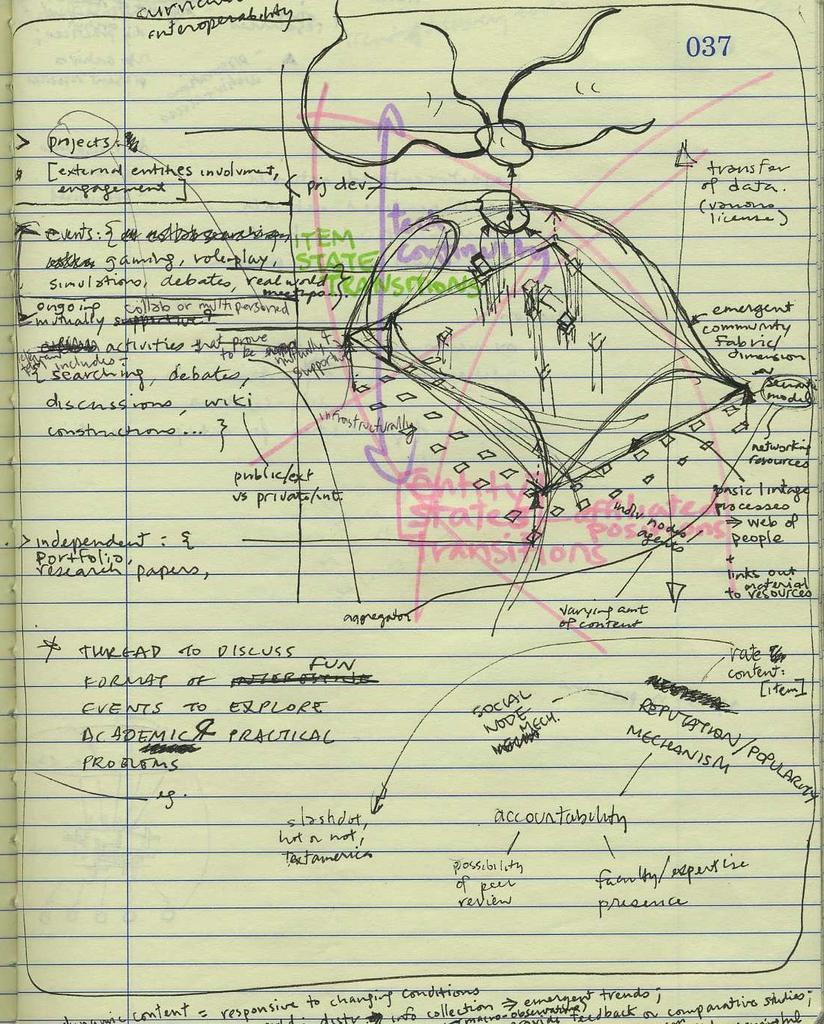 interoperability
037
> projects:
[external entities involvment,
engagement]
< prj dev >
transfer
of data.
(various
license)
events: {
gaming, role-play,
simulations, debates, real world
ongoing
collab or multipersoned
mutually supportive?
activities that prove
to be mutually +
supportive
includes:
{ searching, debates,
discussions, wiki
constructions... }
public/ext
vs private/int.
ITEM
STATE
TRANSITIONS
community
infrastructurally
emergent
community
Fabric/
dimension
semantic
model
networking
resources
basic lintage
processes
⇒ web of
people
+
links out
material
to resources
entity
states
transitions
affiliated
positions
indiv nodes
agents
> independent: {
portfolio,
research papers,
aggregator
varying amt
of content
* THREAD TO DISCUSS
FORMAT OF FUN
EVENTS TO EXPLORE
ACADEMIC & PRACTICAL
PROBLEMS
eg.
slashdot,
hot or not,
textamerica
SOCIAL
NODE
MECH.
rate
content:
[item]
REPUTATION/POPULARITY
MECHANISM
accountability
possibility
of peer
review
faculty/expertise
presence
dynamic content = responsive to changing conditions
info collection ⇒ emergent trends;
feedback or comparative studies;